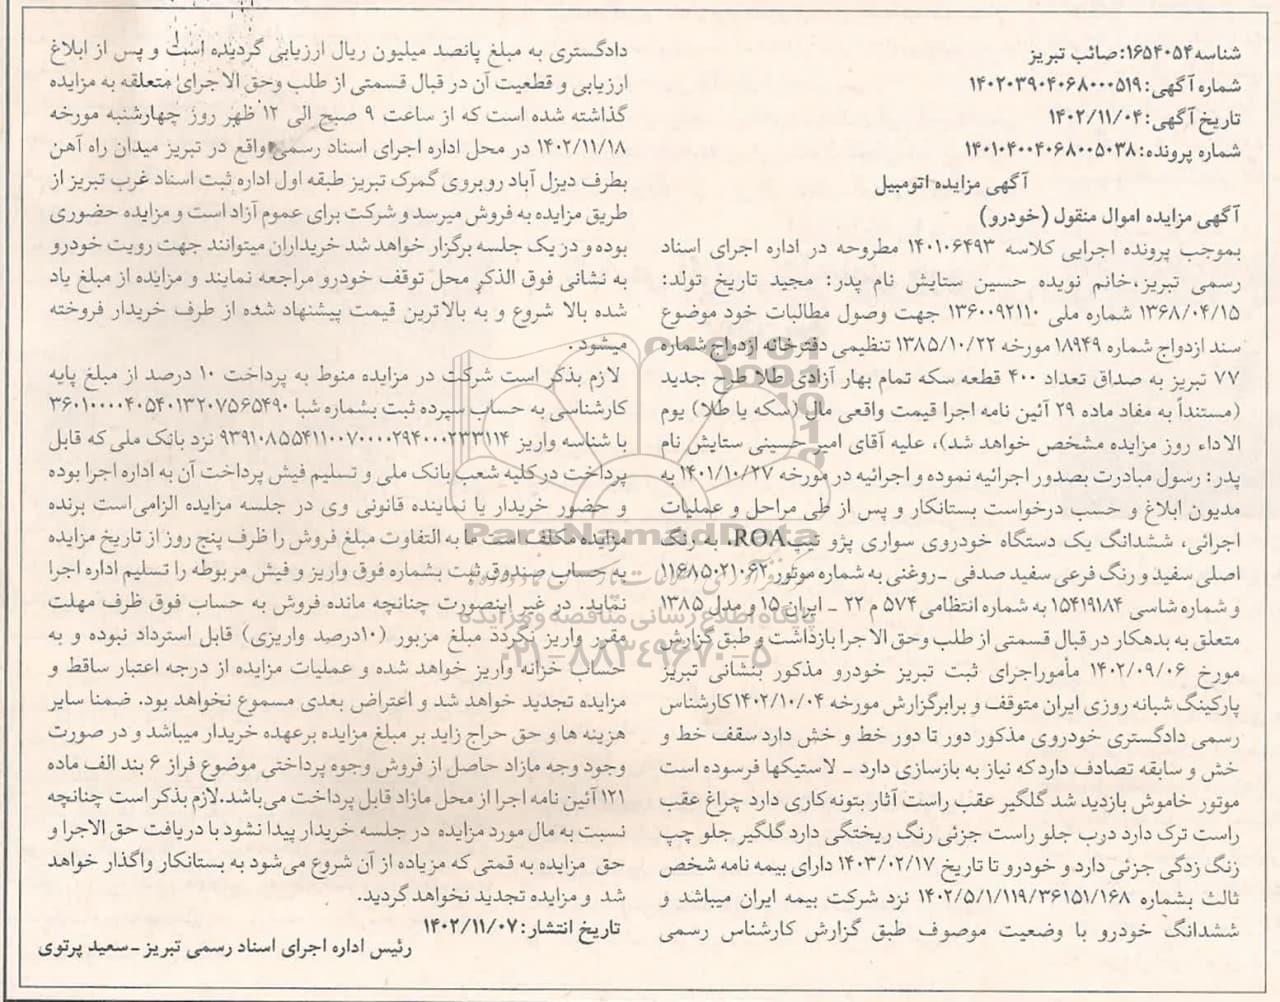 شناسه۱۶۵۴۰۵۴:صائب تبریز
شماره آگهی:۱۴۰۲۰۳۹۰۴۰۶۸۰۰۰۵۱۹
تاریخ آگهی:۱۴۰۲/۱۱/۰۴
شماره پرونده:۱۴۰۱۰۴۰۰۴۰۶۸۰۰۵۰۳۸
آگهی مزایده اتومبیل
آگهی مزایده اموال منقول (خودرو)
بموجب پرونده اجرایی کلاسه ۱۴۰۱۰۶۴۹۳ مطروحه در اداره اجرای اسناد
رسمی تبریز،خانم نویده حسین ستایش نام پدر: مجید تاریخ تولد:
۱۳۶۸/۰۴/۱۵ شماره ملی ۱۳۶۰۰۹۲۱۱۰ جهت وصول مطالبات خود موضوع
سند ازدواج شماره ۱۸۹۴۹ مورخه ۱۳۸۵/۱۰/۲۲ تنظیمی دفترخانه ازدواج شماره
۷۷ تبریز به صداق تعداد ۴۰۰ قطعه سکه تمام بهار آزادی طلا طرح جدید
(مستنداً به مفاد ماده ۲۹ آئین نامه اجرا قیمت واقعی مال (سکه یا طلا) یوم
الاداء روز مزایده مشخص خواهد شد)، علیه آقای امیر حسینی ستایش نام
پدر: رسول مبادرت بصدور اجرائیه نموده و اجرائیه در مورخه ۱۴۰۱/۱۰/۲۷ به
مدیون ابلاغ و حسب درخواست بستانکار و پس از طی مراحل و عملیات
اجرائی، ششدانگ یک دستگاه خودروی سواری پژو تیپ ROA، به رنگ
اصلی سفید و رنگ فرعی سفید صدفی -روغنی به شماره موتور ۱۱۶۸۵۰۲۱۰۶۲
و شماره شاسی ۱۵۴۱۹۱۸۴ به شماره انتظامی ۵۷۴ م ۲۲ - ایران ۱۵ و مدل ۱۳۸۵
متعلق به بدهکار در قبال قسمتی از طلب وحق الاجرا بازداشت و طبق گزارش
مورخ ۱۴۰۲/۰۹/۰۶ مأموراجرای ثبت تبریز خودرو مذکور بنشانی تبریز
پارکینگ شبانه روزی ایران متوقف و برابرگزارش مورخه ۱۴۰۲/۱۰/۰۴ کارشناس
رسمی دادگستری خودروی مذکور دور تا دور خط و خش دارد سقف خط و
خش و سابقه تصادف دارد که نیاز به بازسازی دارد - لاستیکها فرسوده است
موتور خاموش بازدید شد گلگیر عقب راست آثار بتونه کاری دارد چراغ عقب
راست ترک دارد درب جلو راست جزئی رنگ ریختگی دارد گلگیر جلو چپ
زنگ زدگی جزئی دارد و خودرو تا تاریخ ۱۴۰۳/۰۲/۱۷ دارای بیمه نامه شخص
ثالث بشماره ۱۴۰۲/۵/۱/۱۱۹/۳۶۱۵۱/۱۶۸ نزد شرکت بیمه ایران میباشد و
ششدانگ خودرو با وضعیت موصوف طبق گزارش کارشناس رسمی
دادگستری به مبلغ پانصد میلیون ریال ارزیابی گردیده است و پس از ابلاغ
ارزیابی و قطعیت آن در قبال قسمتی از طلب وحق الاجرای متعلقه به مزایده
گذاشته شده است که از ساعت ۹ صبح الی ۱۲ ظهر روز چهارشنبه مورخه
۱۴۰۲/۱۱/۱۸ در محل اداره اجرای اسناد رسمی واقع در تبریز میدان راه آهن
بطرف دیزل آباد روبروی گمرک تبریز طبقه اول اداره ثبت اسناد غرب تبریز از
طریق مزایده به فروش میرسد و شرکت برای عموم آزاد است و مزایده حضوری
بوده و در یک جلسه برگزار خواهد شد خریداران میتوانند جهت رویت خودرو
به نشانی فوق الذکر محل توقف خودرو مراجعه نمایند و مزایده از مبلغ یاد
شده بالا شروع و به بالاترین قیمت پیشنهاد شده از طرف خریدار فروخته
میشود.
لازم بذکر است شرکت در مزایده منوط به پرداخت ۱۰ درصد از مبلغ پایه
کارشناسی به حساب سپرده ثبت بشماره شبا ۳۶۰۱۰۰۰۰۴۰۵۴۰۱۳۲۰۷۵۶۵۴۹۰
با شناسه واریز ۹۳۹۱۰۸۵۵۴۱۱۰۰۷۰۰۰۰۲۹۴۰۰۰۲۳۳۱۱۴ نزد بانک ملی که قابل
پرداخت در کلیه شعب بانک ملی و تسلیم فیش پرداخت آن به اداره اجرا بوده
و حضور خریدار یا نماینده قانونی وی در جلسه مزایده الزامی‌است برنده
مزایده مکلف است ما به التفاوت مبلغ فروش را ظرف پنج روز از تاریخ مزایده
به حساب صندوق ثبت بشماره فوق واریز و فیش مربوطه را تسلیم اداره اجرا
نماید. در غیر اینصورت چنانچه مانده فروش به حساب فوق ظرف مهلت
مقرر واریز نگردد مبلغ مزبور (۱۰درصد واریزی) قابل استرداد نبوده و به
حساب خزانه واریز خواهد شد و عملیات مزایده از درجه اعتبار ساقط و
مزایده تجدید خواهد شد و اعتراض بعدی مسموع نخواهد بود. ضمنا سایر
هزینه ها و حق حراج زاید بر مبلغ مزایده برعهده خریدار میباشد و در صورت
وجود وجه مازاد حاصل از فروش وجوه پرداختی موضوع فراز ۶ بند الف ماده
۱۲۱ آئین نامه اجرا از محل مازاد قابل پرداخت می‌باشد.لازم بذکر است چنانچه
نسبت به مال مورد مزایده در جلسه خریدار پیدا نشود با دریافت حق الاجرا و
حق مزایده به قمتی که مزیاده از آن شروع می‌شود به بستانکار واگذار خواهد
شد و مزایده تجدید نخواهد گردید.
تاریخ انتشار:۱۴۰۲/۱۱/۰۷
رئیس اداره اجرای اسناد رسمی تبریز -سعید پرتوی
ParsNamadData
پایگاه اطلاع رسانی مناقصه و مزایده
۰۲۱-۸۸۳۴۹۶۷۰-۵